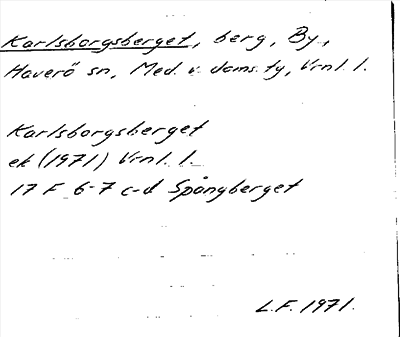 Karlsborgsberget, berg, By,
Haverö sn, Med. v. doms. tg, Vrnl. l.
Karlsborgsberget
ek (1971) Vrnl. l.
17 F 6-7 c-d Spångberget
L.F. 1971.